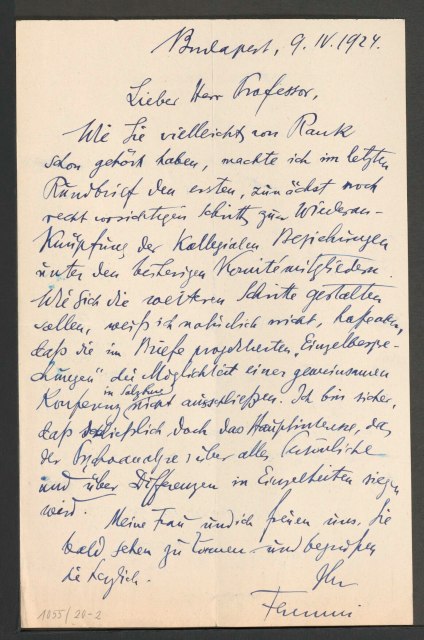 Budapest, 9. IV. 1924.
Lieber Herr Professor,
Wie Sie vielleicht von Rank
schon gehört haben, machte ich im letzten
Rundbrief den ersten, zunächst noch
recht vorsichtigen Schritt zur Wiederan-
Knüpfung der Kollegialen Beziehungen
unter den bisherigen Komitémitgliedern.
Wie sich die weiteren Schritte gestalten
sollen, weiß ich natürlich nicht,
daß die im Briefe projektierten „Einzelbespre-
chungen" die Möglichkeit einer gemeinsamen
in Salzburg
Konferenz nicht ausschließen. Ich bin sicher,
daß schließlich doch das Hauptinteresse, das
der Psychoanalyse über alles Persönliche
und über Differenzen in Einzelheiten siegen
wird.
Meine Frau und ich freuen uns, Sie
bald sehen zu können und begrüßen
Sie herzlich.
Ihr
Ferenczi
1055/24-2